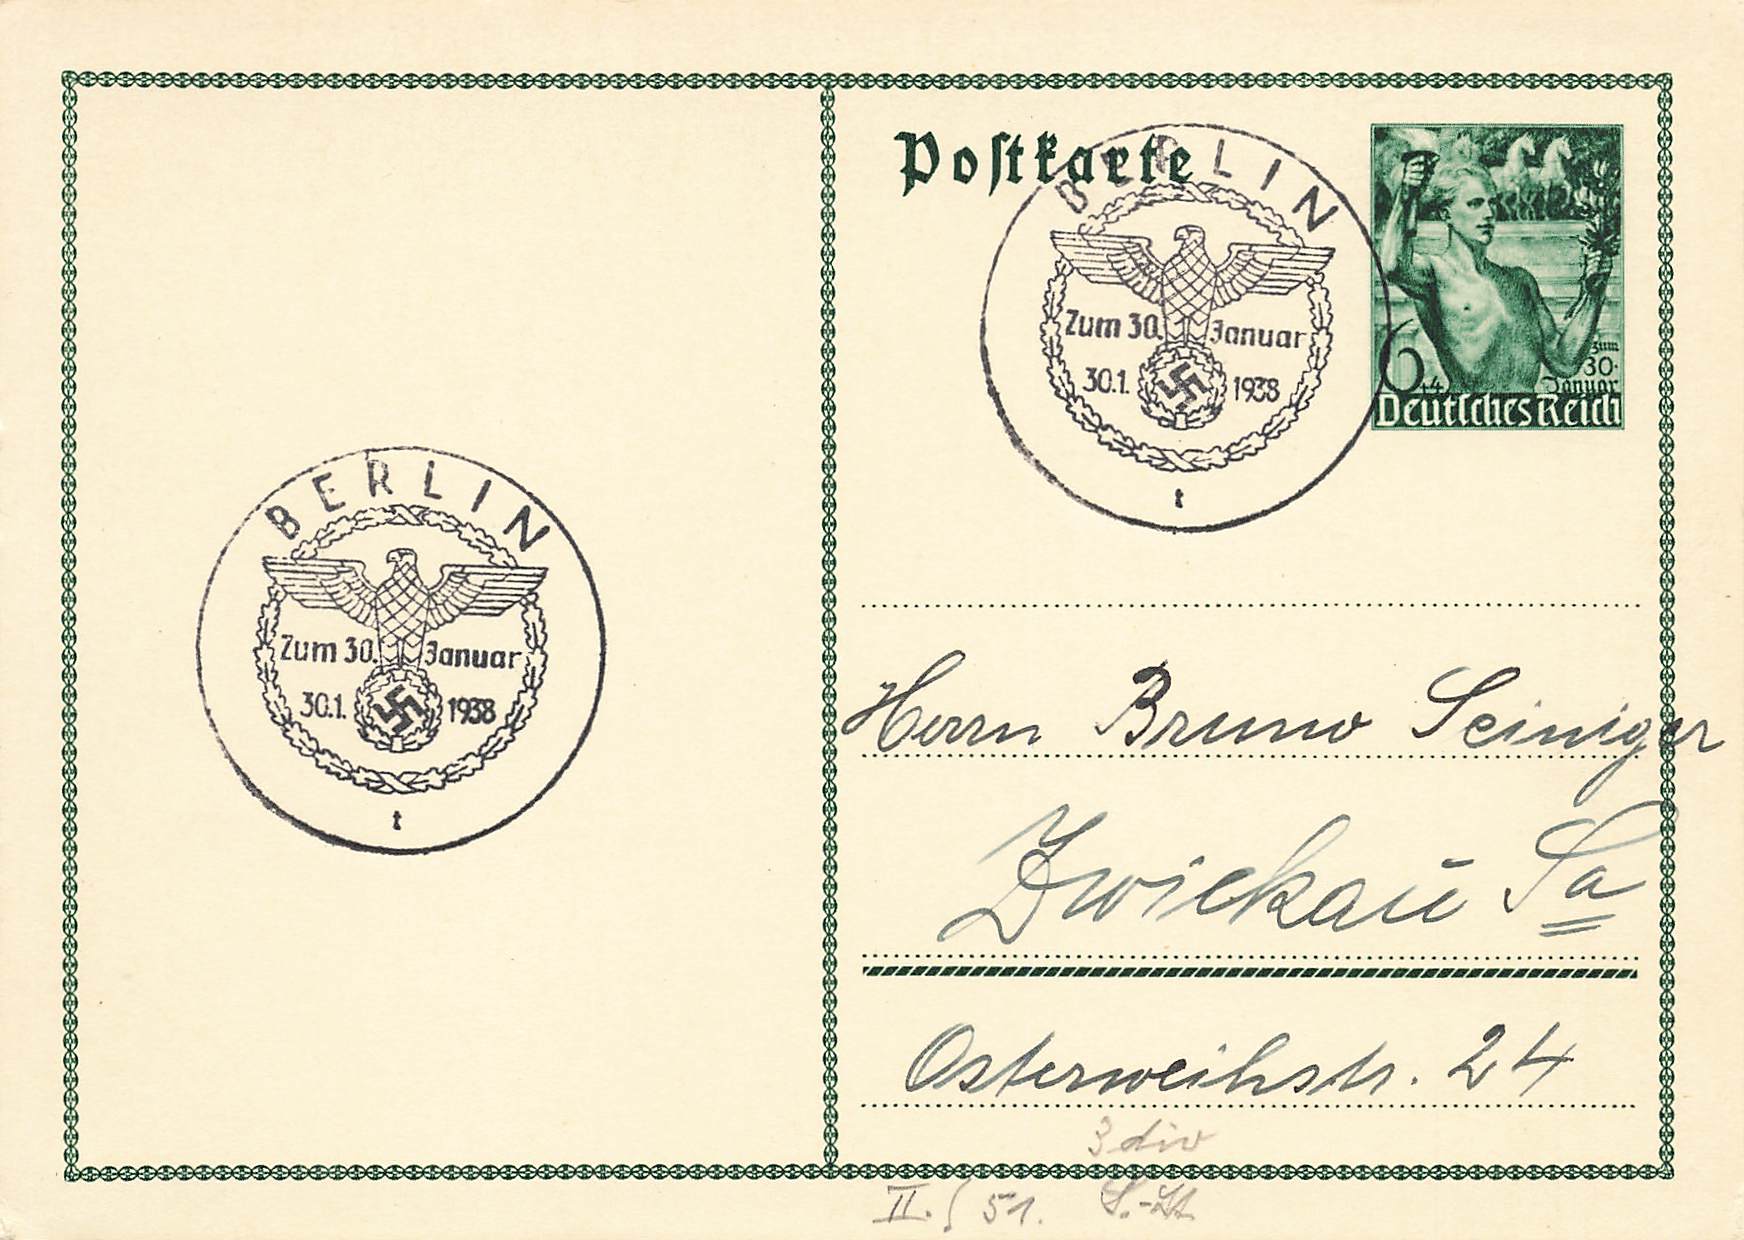 Postkarte
BERLIN
Zum 30. Januar
30.1. 1938
t
6+4
zum
30.
Januar
Deutsches Reich
BERLIN
Zum 30. Januar
30.1. 1938
t
Herrn Bruno Seiniger
Zwickau Sa
Osterweihstr. 24
3 div
II. 51.